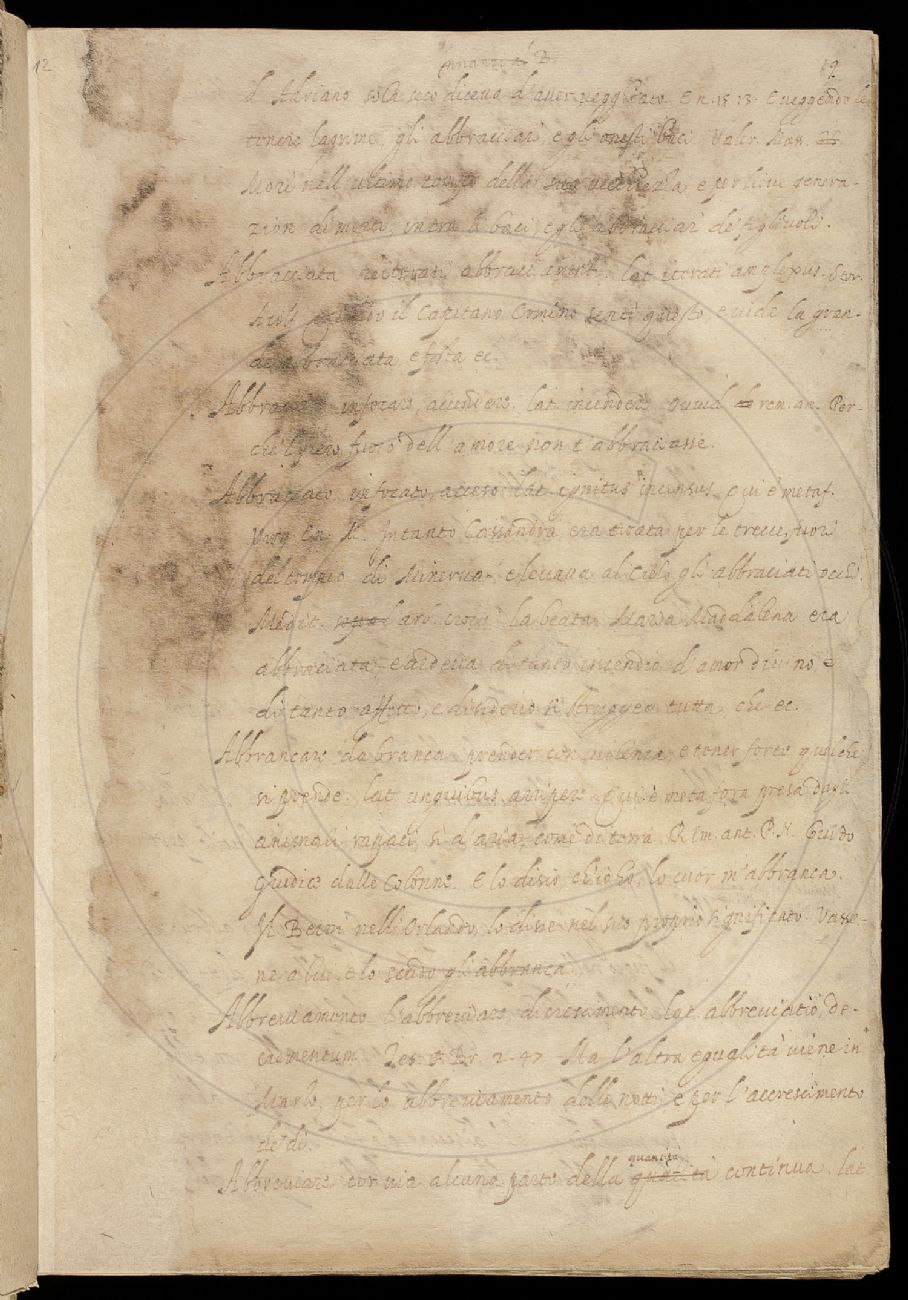 12
19
d Adriano sole seco diceva d'aver E n. 15. 13. E veggendo le
tenere lagrime, gli abbracciari, e gli onesti baci Valer. Mass.
Morì nell'ultimo della sua vecchiezza, e per lieve genera-
zion di morte, intra li baci, e gli abbracciari de' figlivoli.
Abbracciata reiterati abbracciamenti. lat. iterati amplexus. Stor.
il Capitano Comino sentì questo, e vide la gran-
de abbracciata e festa ec.
Abbraciare infocare, accendere. lat. incendere. rem. am. Per-
che 'l fuoco dell'amore non t'abbraciasse.
Abbraciato infocato, acceso. lat. ignitus incensus. qui è metaf.
Virg. En. M. Intanto Cassandra era tirata per le trecce, fuori
del tempio di Minerva, e levava al Cielo gli abbraciati occhi.
Medit. arb. croc. la beata Maria Maddalena era
abbraciata, e ardeva di tanto incendio d'amor divino e
di tanto affetto, e disiderio si struggea tutta, che ec.
Abbrancare da branca. prender con violenza, e tener forte quel che
si prende. lat. unguibus arripere. Qui è metafora presa dagli
animali rapaci, sì d'aria, come di terra. Rim. ant. P. N. Guido
Giudice dalle Colonne. E lo disio, ch'io ho, lo cuor m'abbranca.
Il Berni nell'Orlando, lo disse nel suo proprio significato. Vasse-
ne a lui, e lo scudo gli abbranca.
Abbreviamento L'abbreviare, dicrescimento. lat. abbreviatio, de-
crementum. Tes. Br. 2. 47. Ma l'altra egualità viene in
Marzo, per lo abbreviamento delle notti, e per l'accrescimento
de' dì.
quantità
Abbreviare tor via alcuna parte della continua. lat.